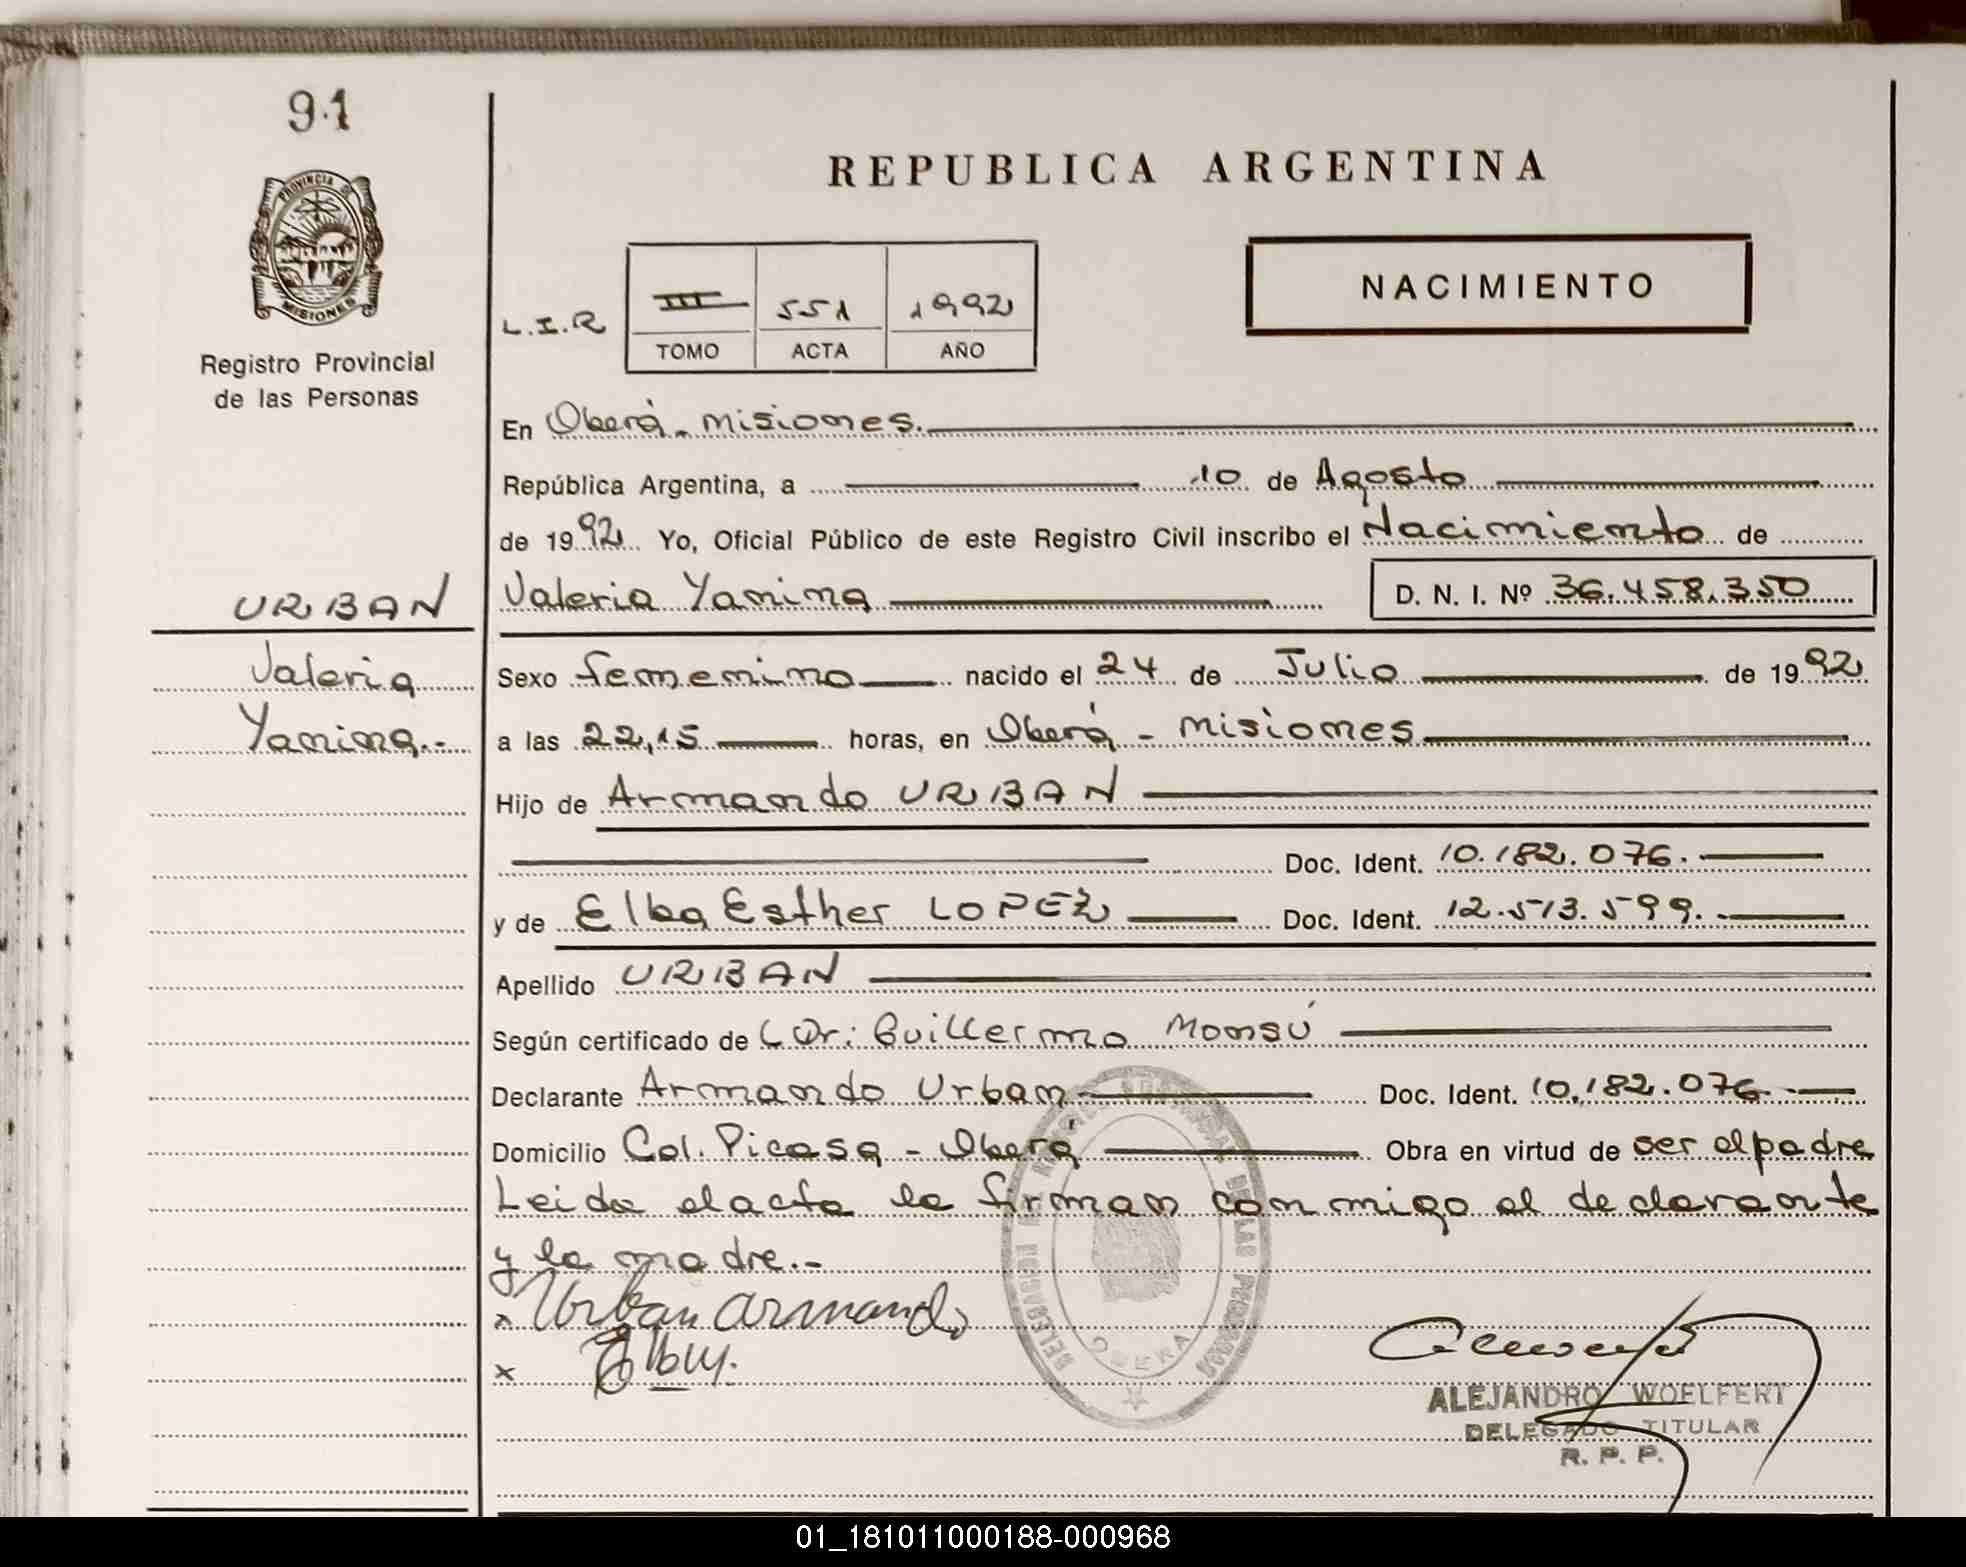 91
PROVINCIA D
MISIONES
Registro Provincial
de las Personas
REPUBLICA ARGENTINA
NACIMIENTO
L.I.R
III 551 1992
TOMO ACTA AÑO
En Oberá - misiones.
República Argentina, a 10 de Agosto
de 1992 Yo, Oficial Público de este Registro Civil inscribo el Nacimiento de
URBAN
Valeria Yanina D. N. I. Nº 36.458.350
Valeria
Sexo femenino nacido el 24 de Julio de 1992
Yanina.-
a las 22,15 horas, en Oberá - misiones
Hijo de Armando URBAN
Doc. Ident. 10.182.076.
y de Elba Esther LOPEZ Doc. Ident. 12.513.599.
Apellido URBAN
Según certificado de Dr: Guillermo Monsú
Declarante Armando Urban Doc. Ident. 10.182.076
Domicilio Col. Picasa - Oberá Obra en virtud de ser el padre
Leida el acta la firman conmigo el declarante
y la madre.-
x Urban armando
x
DE LAS PERSONAS
OBERA
ALEJANDRO WOELFERT
DELEGADO TITULAR
R. P. P.
01_181011000188-000968